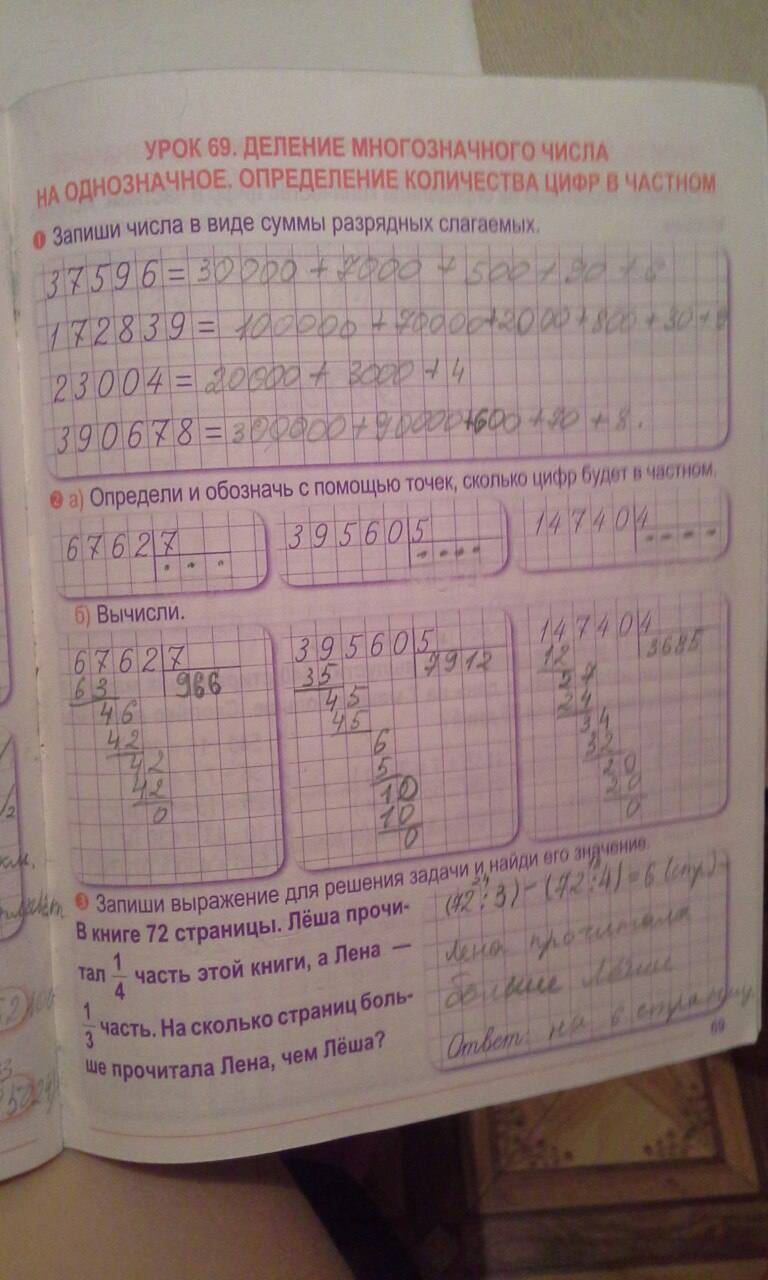 УРОК 69. ДЕЛЕНИЕ МНОГОЗНАЧНОГО ЧИСЛА
НА ОДНОЗНАЧНОЕ. ОПРЕДЕЛЕНИЕ КОЛИЧЕСТВА ЦИФР В ЧАСТНОМ
1 Запиши числа в виде суммы разрядных слагаемых.
37596 = 30000 + 7000 + 500 + 90 + 6
172839 = 100000 + 70000 + 2000 + 800 + 30 + 9
23004 = 20000 + 3000 + 4
390678 = 300000 + 90000 + 600 + 70 + 8.
2 а) Определи и обозначь с помощью точек, сколько цифр будет в частном.
6762 7
39560 5
14740 4
б) Вычисли.
6762 7
966
63
46
42
42
42
0
39560 5
7912
35
45
45
6
5
10
10
0
14740 4
3685
12
27
24
34
32
20
20
0
3 Запиши выражение для решения задачи и найди его значение.
В книге 72 страницы. Лёша прочи-
тал 1/4 часть этой книги, а Лена —
1/3 часть. На сколько страниц боль-
ше прочитала Лена, чем Лёша?
24 18
(72:3) - (72:4) = 6 (стр.) -
Лена прочитала
больше Лёши
Ответ: на 6 страниц
69